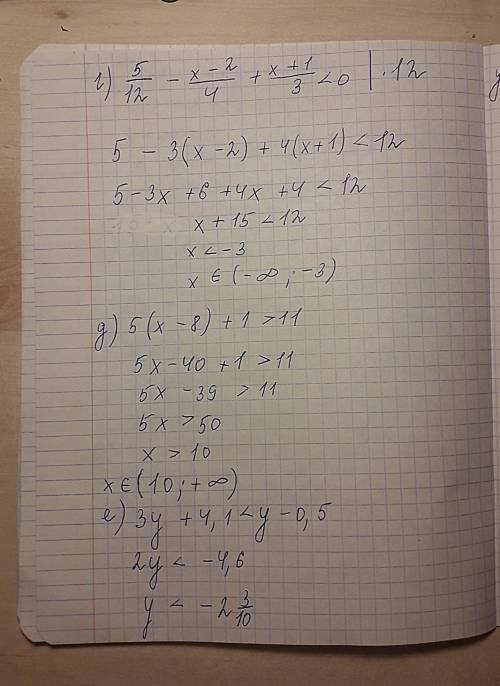 г) 5/12 - x-2/4 + x+1/3 < 0 | · 12
5 - 3(x-2) + 4(x+1) < 12
5-3x +6 +4x +4 < 12
x + 15 < 12
x < -3
x ∈ (-∞; -3)
д) 5(x-8) + 1 > 11
5x-40 +1 > 11
5x -39 > 11
5x > 50
x > 10
x ∈ (10; +∞)
е) 3y + 4,1 < y - 0,5
2y < -4,6
y < -2 3/10